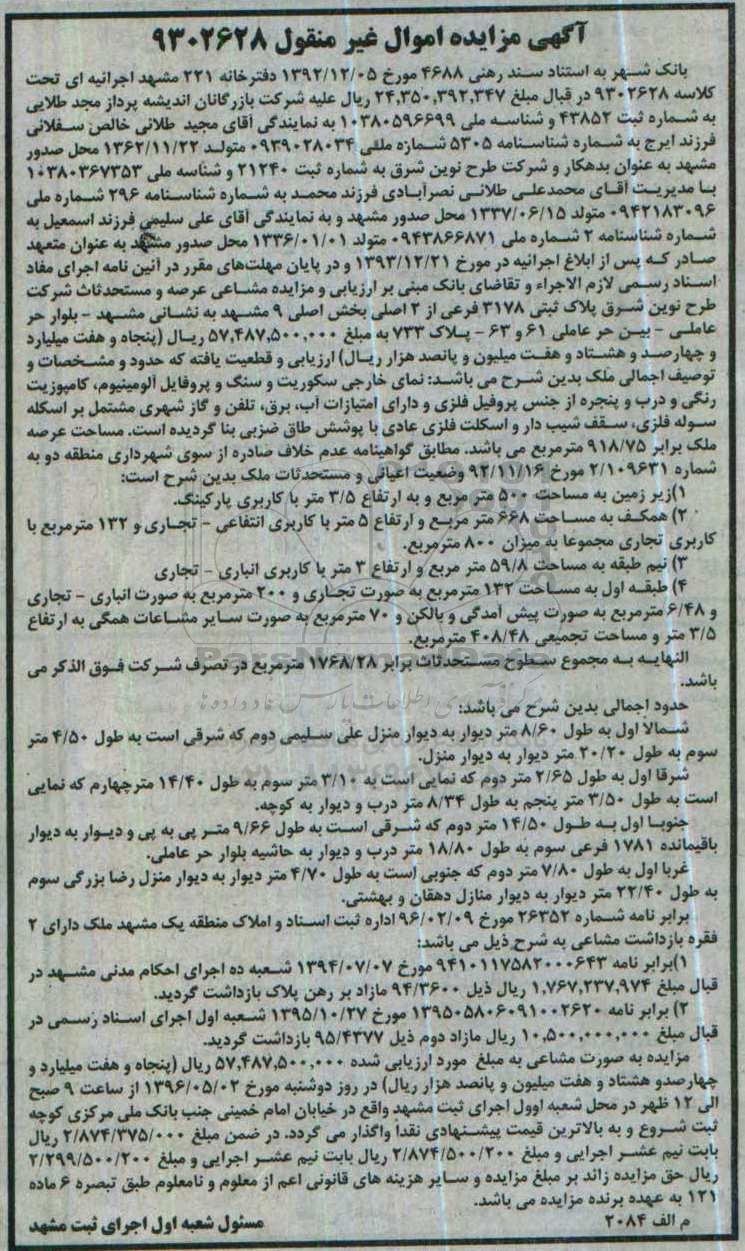 آگهی مزایده اموال غیر منقول ۹۳۰۲۶۲۸
بانک شهر به استناد سند رهنی ۴۶۸۸ مورخ ۱۳۹۲/۱۲/۰۵ دفترخانه ۲۲۱ مشهد اجرائیه ای تحت
کلاسه ۹۳۰۲۶۲۸ در قبال مبلغ ۲۴,۳۵۰,۳۹۲,۳۴۷ ریال علیه شرکت بازرگانان اندیشه پرداز مجد طلایی
به شماره ثبت ۴۳۸۵۲ و شناسه ملی ۱۰۳۸۰۵۹۶۶۹۹ به نمایندگی آقای مجید طلائی خالص سفلائی
فرزند ایرج به شماره شناسنامه ۵۳۰۵ شماره ملی ۰۹۳۹۰۲۸۰۳۴ متولد ۱۳۶۲/۱۱/۲۲ محل صدور
مشهد به عنوان بدهکار و شرکت طرح نوین شرق به شماره ثبت ۲۱۲۴۰ و شناسه ملی ۱۰۳۸۰۳۶۷۳۵۳
با مدیریت آقای محمدعلی طلائی نصرآبادی فرزند محمد به شماره شناسنامه ۲۹۶ شماره ملی
۰۹۴۲۱۸۳۰۹۶ متولد ۱۳۳۷/۰۶/۱۵ محل صدور مشهد و به نمایندگی آقای علی سلیمی فرزند اسمعیل به
شماره شناسنامه ۲ شماره ملی ۰۹۴۳۸۶۶۸۷۱ متولد ۱۳۳۶/۰۱/۰۱ محل صدور مشهد به عنوان متعهد
صادر که پس از ابلاغ اجرائیه در مورخ ۱۳۹۳/۱۲/۲۱ و در پایان مهلت‌های مقرر در آئین نامه اجرای مفاد
اسناد رسمی لازم الاجراء و تقاضای بانک مبنی بر ارزیابی و مزایده مشاعی عرصه و مستحدثات شرکت
طرح نوین شرق پلاک ثبتی ۳۱۷۸ فرعی از ۲ اصلی بخش اصلی ۹ مشهد به نشانی مشهد - بلوار حر
عاملی - بین حر عاملی ۶۱ و ۶۳ - پلاک ۷۳۳ به مبلغ ۵۷,۴۸۷,۵۰۰,۰۰۰ ریال (پنجاه و هفت میلیارد
و چهارصد و هشتاد و هفت میلیون و پانصد هزار ریال) ارزیابی و قطعیت یافته که حدود و مشخصات و
توصیف اجمالی ملک بدین شرح می باشد: نمای خارجی سکوریت و سنگ و پروفایل آلومینیوم، کامپوزیت
رنگی و درب و پنجره از جنس پروفیل فلزی و دارای امتیازات آب، برق، تلفن و گاز شهری مشتمل بر اسکله
سوله فلزی، سقف شیب دار و اسکلت فلزی عادی با پوشش طاق ضربی بنا گردیده است. مساحت عرصه
ملک برابر ۹۱۸/۷۵ مترمربع می باشد. مطابق گواهینامه عدم خلاف صادره از سوی شهرداری منطقه دو به
شماره ۲/۱۰۹۶۳۱ مورخ ۹۲/۱۱/۱۶ وضعیت اعیانی و مستحدثات ملک بدین شرح است:
۱)زیر زمین به مساحت ۵۰۰ متر مربع و به ارتفاع ۳/۵ متر با کاربری پارکینگ.
۲) همکف به مساحت ۶۶۸ متر مربع و ارتفاع ۵ متر با کاربری انتفاعی - تجاری و ۱۳۲ مترمربع با
کاربری تجاری مجموعا به میزان ۸۰۰ مترمربع.
۳) نیم طبقه به مساحت ۵۹/۸ متر مربع و ارتفاع ۳ متر با کاربری انباری - تجاری
۴) طبقه اول به مساحت ۱۳۲ مترمربع به صورت تجاری و ۲۰۰ مترمربع به صورت انباری - تجاری
و ۶/۴۸ مترمربع به صورت پیش آمدگی و بالکن و ۷۰ مترمربع به صورت سایر مشاعات همگی به ارتفاع
۳/۵ متر و مساحت تجمیعی ۴۰۸/۴۸ مترمربع.
النهایه به مجموع سطوح مستحدثات برابر ۱۷۶۸/۲۸ مترمربع در تصرف شرکت فوق الذکر می
باشد.
حدود اجمالی بدین شرح می باشد:
شمالا اول به طول ۸/۶۰ متر دیوار به دیوار منزل علی سلیمی دوم که شرقی است به طول ۴/۵۰ متر
سوم به طول ۲۰/۲۰ متر دیوار به دیوار منزل.
شرقا اول به طول ۲/۶۵ متر دوم که نمایی است به ۳/۱۰ متر سوم به طول ۱۴/۴۰ مترچهارم که نمایی
است به طول ۳/۵۰ متر پنجم به طول ۸/۳۴ متر درب و دیوار به کوچه.
جنوبا اول به طول ۱۴/۵۰ متر دوم که شرقی است به طول ۹/۶۶ متر پی به پی و دیوار به دیوار
باقیمانده ۱۷۸۱ فرعی سوم به طول ۱۸/۸۰ متر درب و دیوار به حاشیه بلوار حر عاملی.
غربا اول به طول ۷/۸۰ متر دوم که جنوبی است به طول ۴/۷۰ متر دیوار به دیوار منزل رضا بزرگی سوم
به طول ۲۲/۴۰ متر دیوار به دیوار منازل دهقان و بهشتی.
برابر نامه شماره ۲۶۳۵۲ مورخ ۹۶/۰۲/۰۹ اداره ثبت اسناد و املاک منطقه یک مشهد ملک دارای ۲
فقره بازداشت مشاعی به شرح ذیل می باشد:
۱)برابر نامه ۹۴۱۰۱۱۷۵۸۲۰۰۰۶۴۳ مورخ ۱۳۹۴/۰۷/۰۷ شعبه ده اجرای احکام مدنی مشهد در
قبال مبلغ ۱,۷۶۷,۲۳۷,۹۷۴ ریال ذیل ۹۴/۳۶۰۰ مازاد بر رهن پلاک بازداشت گردید.
۲) برابر نامه ۱۳۹۵۰۵۸۰۶۰۹۱۰۰۲۶۲۰ مورخ ۱۳۹۵/۱۰/۲۷ شعبه اول اجرای اسناد رسمی در
قبال مبلغ ۱۰,۵۰۰,۰۰۰,۰۰۰ ریال مازاد دوم ذیل ۹۵/۴۳۷۷ بازداشت گردید.
مزایده به صورت مشاعی به مبلغ مورد ارزیابی شده ۵۷,۴۸۷,۵۰۰,۰۰۰ ریال (پنجاه و هفت میلیارد و
چهارصدو هشتاد و هفت میلیون و پانصد هزار ریال) در روز دوشنبه مورخ ۱۳۹۶/۰۵/۰۲ از ساعت ۹ صبح
الی ۱۲ ظهر در محل شعبه اوول اجرای ثبت مشهد واقع در خیابان امام خمینی جنب بانک ملی مرکزی کوچه
ثبت شروع و به بالاترین قیمت پیشنهادی نقدا واگذار می گردد. در ضمن مبلغ ۲/۸۷۴/۳۷۵/۰۰۰ ریال
بابت نیم عشر اجرایی و مبلغ ۲/۸۷۴/۵۰۰/۲۰۰ ریال بابت نیم عشر اجرایی و مبلغ ۲/۲۹۹/۵۰۰/۲۰۰
ریال حق مزایده زائد بر مبلغ مزایده و سایر هزینه های قانونی اعم از معلوم و نامعلوم طبق تبصره ۶ ماده
۱۲۱ به عهده برنده مزایده می باشد.
م الف ۲۰۸۴
مسئول شعبه اول اجرای ثبت مشهد